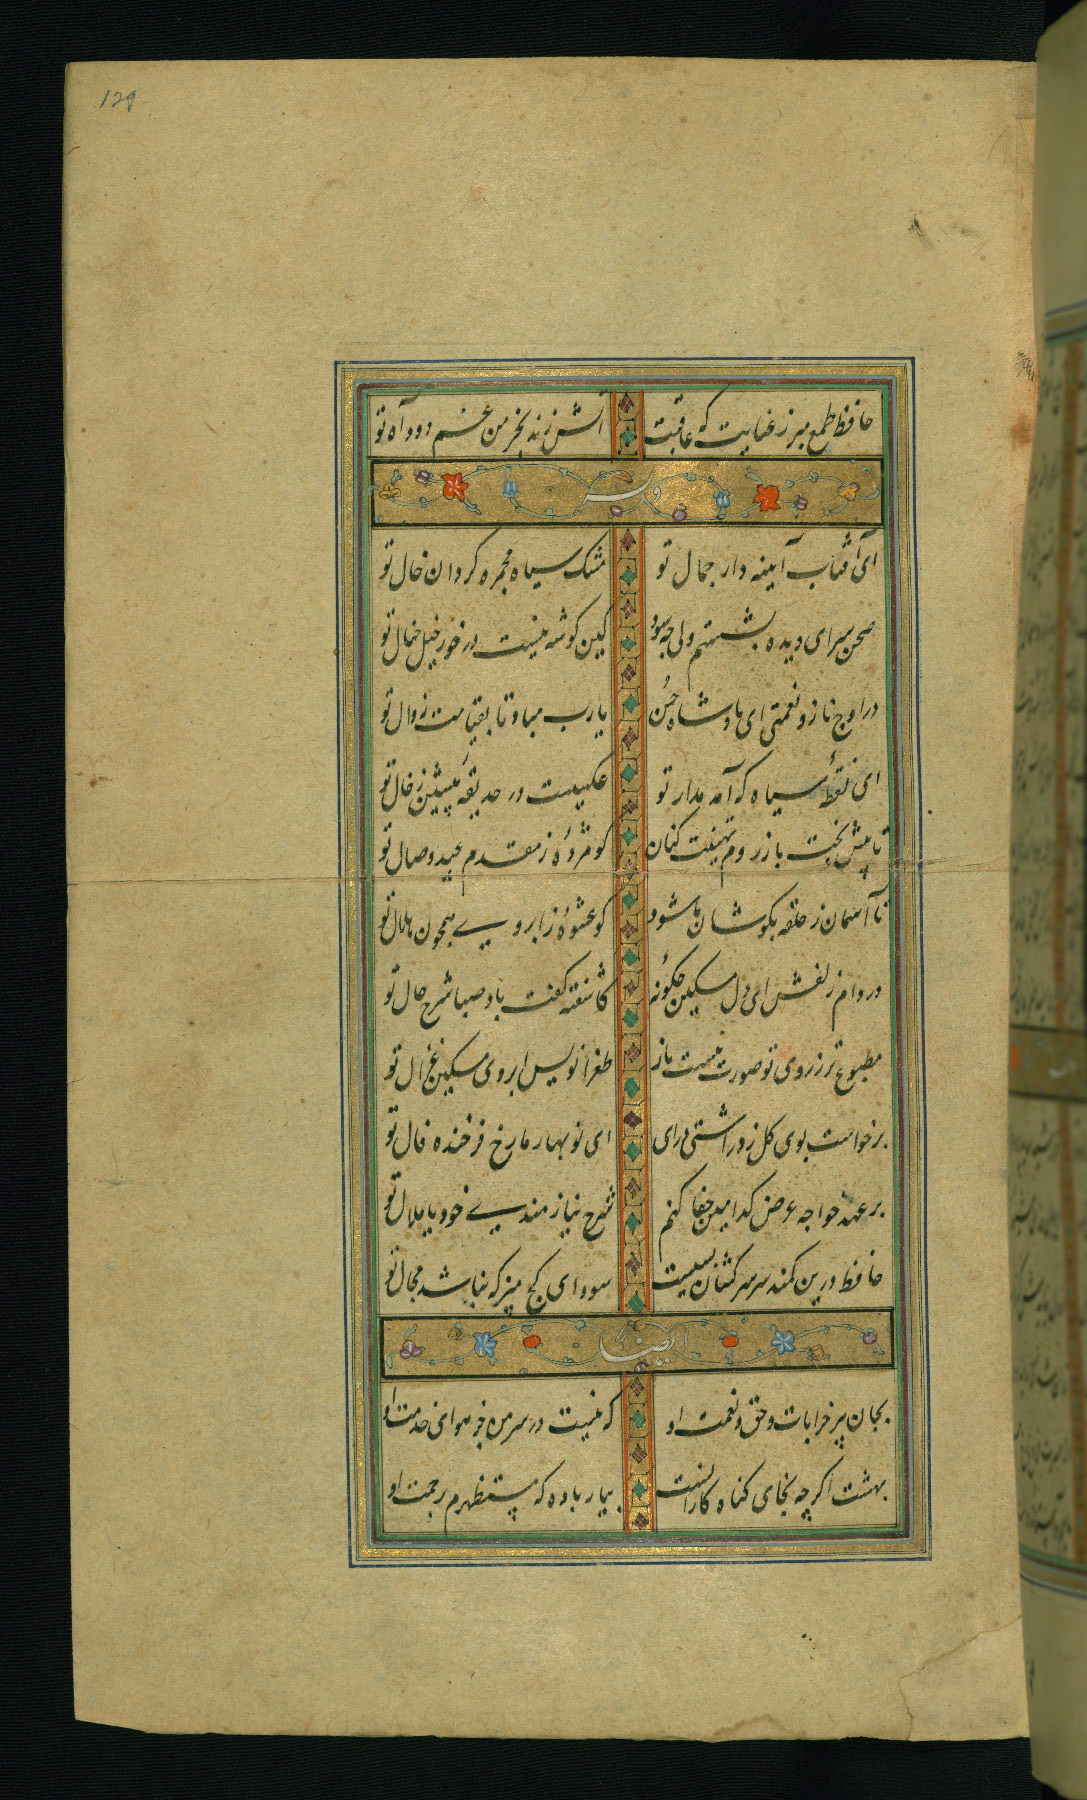 129
حافظ طمع مبر ز عنایت که عاقبت آتش زند بخرمن غم دود آه تو
وله
ای آفتاب آینه دار جمال تو مشک سیاه مجمره گردان خال تو
صحن سرای دیده بشستم ولی چه سود کین گوشه نیست در خور خیل خیال تو
در اوج ناز و نعمتی ای پادشاه حُسن یارب مباد تا بقیامت زوال تو
این نقطهٔ سیاه که آمد مدار تو عکسیست در حدیقهٔ بینش ز خال تو
تا پیش بخت باز روم تهنیت کنان کو مژدهٔ ز مقدم عید وصال تو
تا آسمان ز حلقه بگوشان ما شود کو عشوهٔ ز ابروی همچون هلال تو
در دام زلفش ای دل مسکین چگونهٔ کاشفته گفت باد صبا شرح حال تو
مطبوع تر ز روی تو صورت نبست باز طغرا نویس ابروی مسکین غزال تو
برخواست بوی گل ز در آشتی درای ای نوبهار ما رخ فرخنده فال تو
بر عهد خواجه عرض کدامین جفا کنم شرح نیازمندی خود یا ملال تو
حافظ درین کمند سر سرکشان بسیست سودای کج مپز که نباشد مجال تو
ایضا
بجان پیر خرابات و حق نعمت او که نیست در سر من جز هوای خدمت او
بهشت اگر چه نه جای گناه کارانست بیار باده که مستظهرم برحمت او